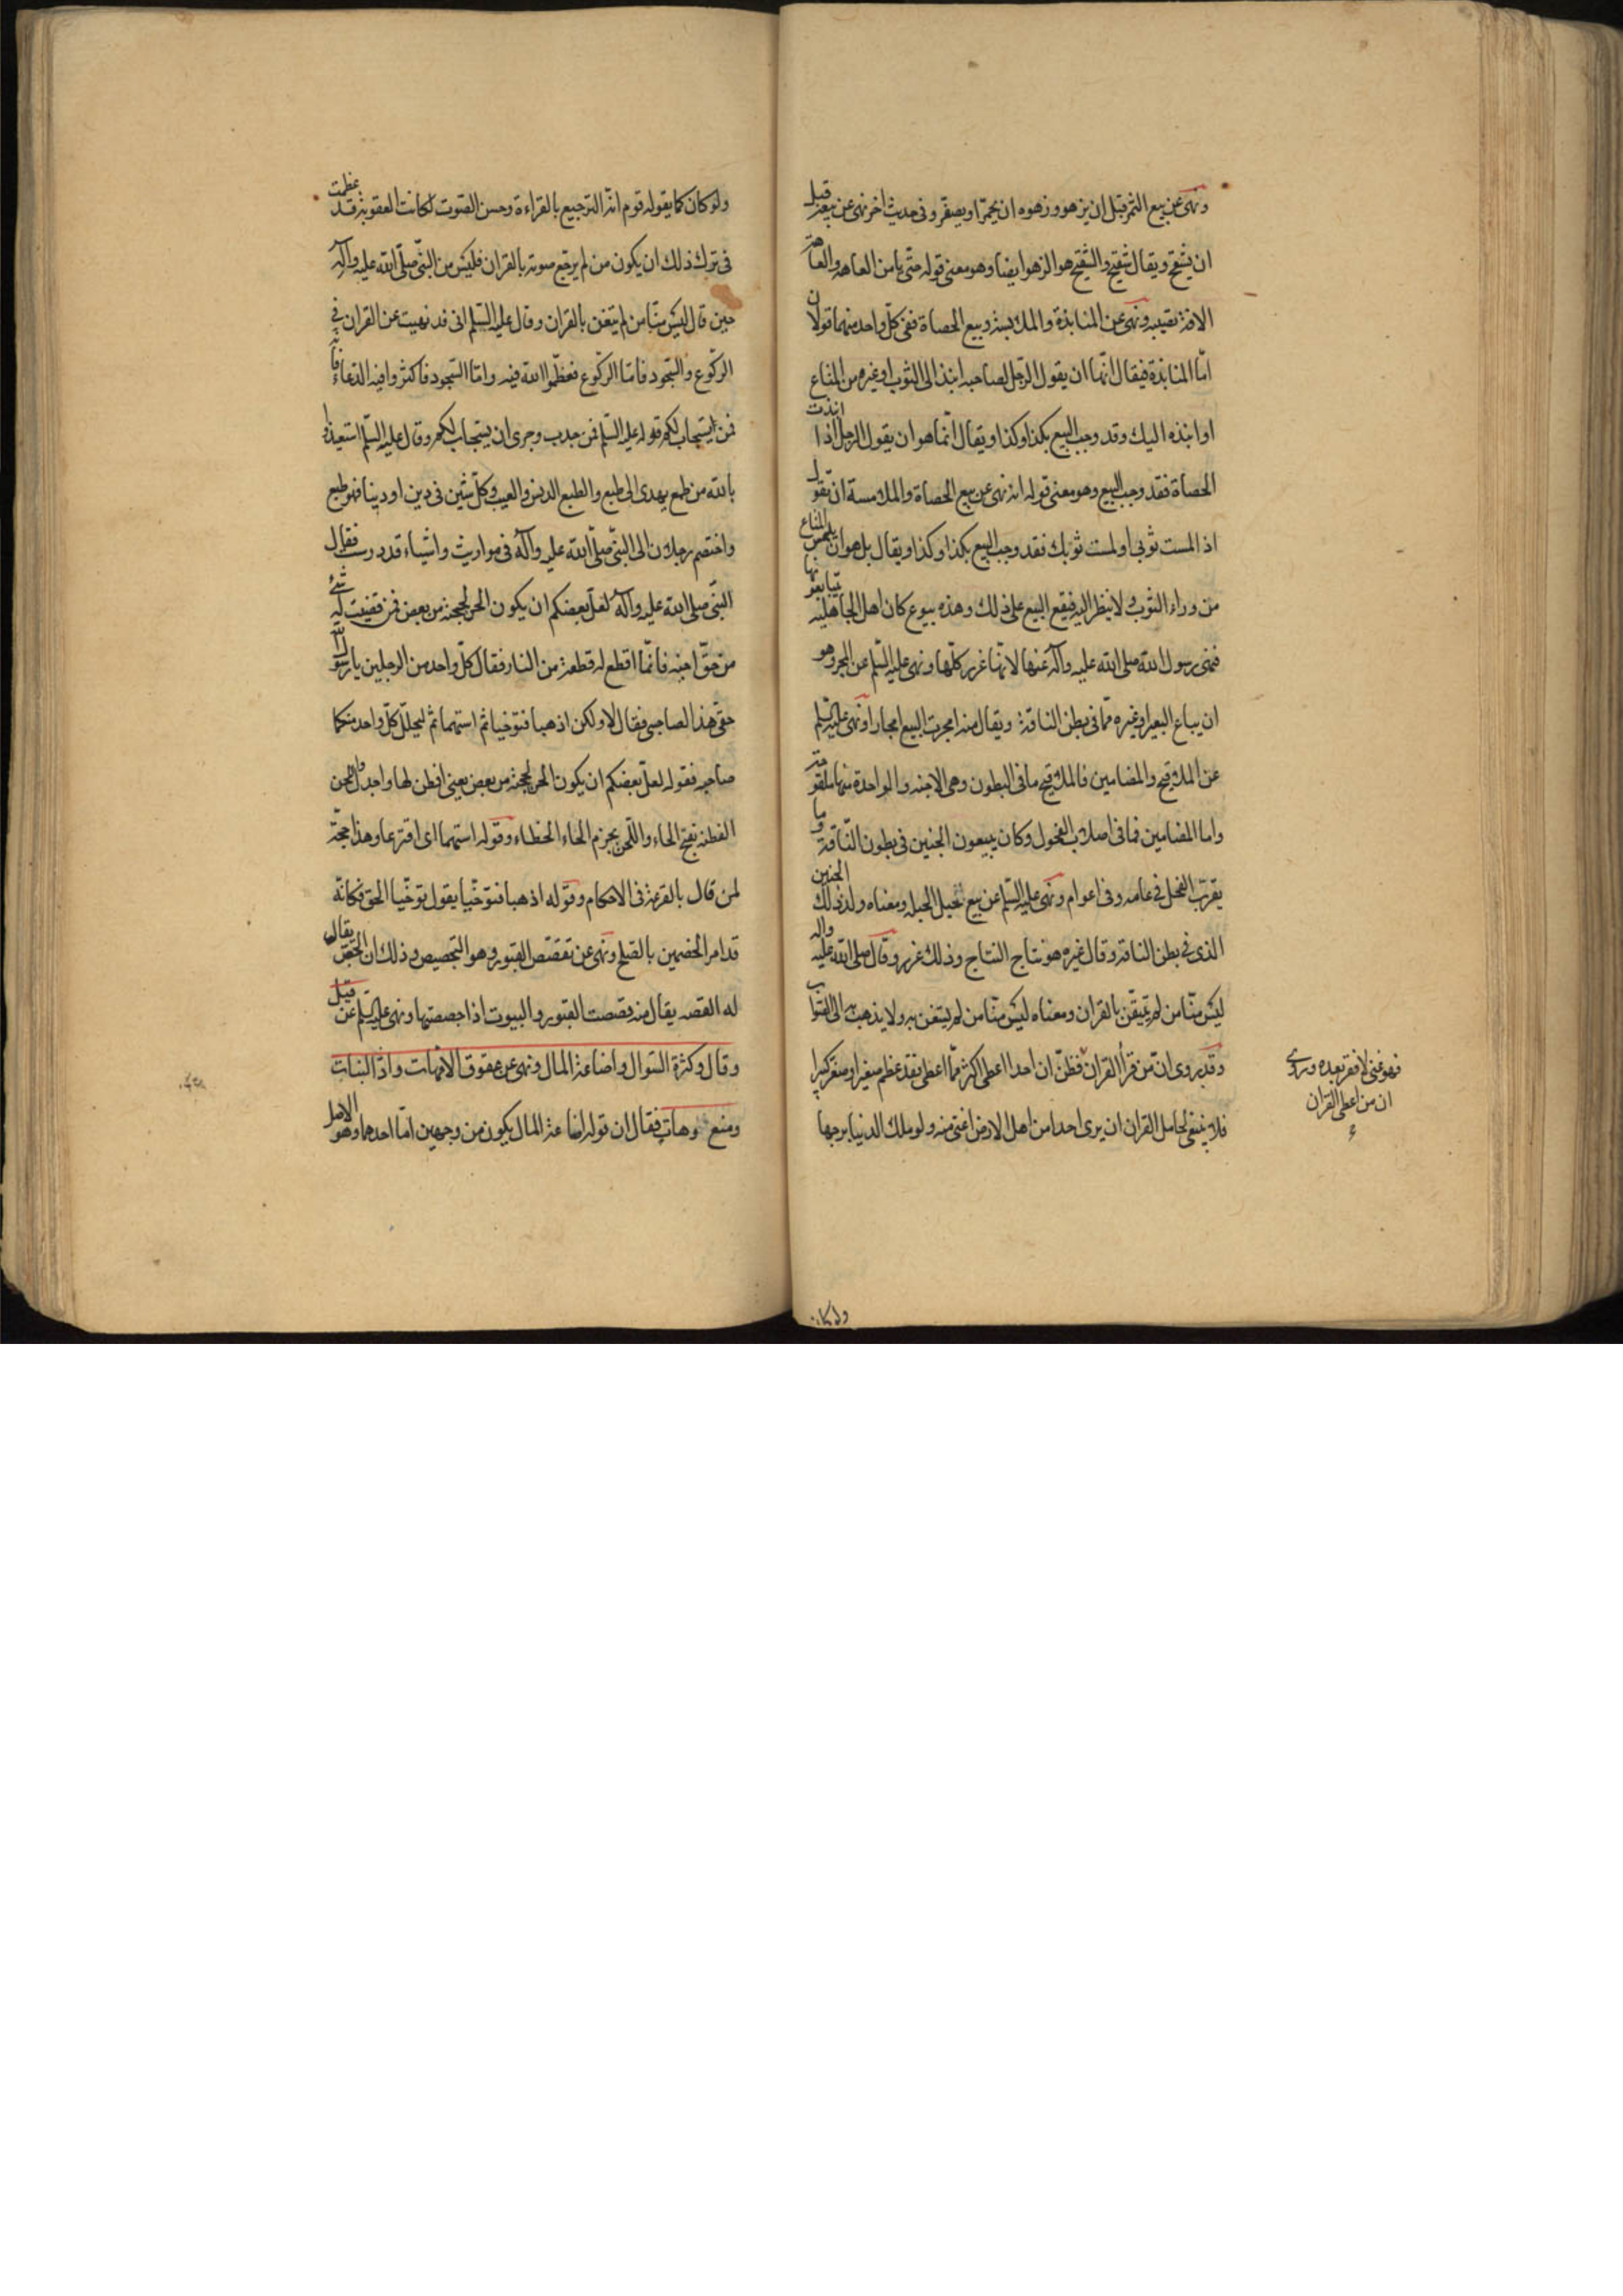 ونهى عن بيع الثمر قبل ان يزهو وزهوه ان يحمرّ او يصفرّ وفى حديث اخر نهى عن بيعه قبل
ان يشقح ويقال تشقيح والتشقيح هو الزهو ايضا وهو معنى قوله حتّى يامن العاهه والعاهة
الافة تصيبه ونهى عن المنابذة والملابسة وبيع الحصاة ففى كلّ واحد منهما قولان
امّا المنابذة فيقال انّها ان يقول الرّجل لصاحبه انبذ الى الثوب او غيره من المتاع
او انبذه اليك وقد وجب البيع بكذا وكذا ويقال انّما هو ان يقول الرجل اذا انبذت
الحصاة فقد وجب البيع وهو معنى قوله انه نهى عن بيع الحصاة والملامسة ان تقول
اذا لمست ثوبى او لمست ثوبك فقد وجب البيع بكذا وكذا ويقال بل هو ان يلمس المتاع
من وراء الثوب ولا ينظر اليه فيقع البيع على ذلك وهذه بيوع كان اهل الجاهلية يتبايعونها
فنهى رسول الله صلى الله عليه وآله عنها لانّها غرر كلّها ونهى عليه السّلم عن المجر وهو
ان يباع البعير او غيره ممّا فى بطن الناقة ويقال منه امجرت البيع امجارا ونهى عليه السّلم
عن الملاقيح والمضامين فالملاقيح ما فى البطون وهى الاجنه والواحدة منها ملقوحة
واما المضامين فما فى اصلاب الفحول وكان يبيعون الجنين فى بطون النّاقة وما
يقرّب الفحل فى عامه وفى اعوام ونهى عليه السّلم عن بيع حبل الحبله ومعناه ولد ذلك الجنين
الذى فى بطن الناقة وقال غيره هو نتاج النتاج وذلك غرر وقال صلى الله عليه واله
ليس منّا من لم يتغنّ بالقران ومعناه ليس منّا من لم يستغن به ولا يذهب به الى الصّواب
وقد روى انّ من قرأ القران فظنّ ان احدا اعطى اكثر ممّا اعطى فقد عظم صغيرا وصغّر كبيرا
فلا ينبغى لحامل القران ان يرى احدا من اهل الارض اغنى منه ولو ملك الدنيا برحبها
فهو غنى لا فقر بعده وروى
ان من اعطى القران
ولو كان
ولو كان كما يقوله قوم انّه الترجيع بالقراءة وحسن الصّوت لكانت العقوبة قد عظمت
فى ترك ذلك ان يكون من لم يرجّع صوته بالقران فليس من النبّى صلّى الله عليه وآله
حين قال ليس منّا من لم يتغن بالقران وقال عليه السّلم انى قد نهيت عن القران فى
الرّكوع والسّجود فامّا الرّكوع فعظّموا الله فيه وامّا السّجود فاكثروا فيه الدّعاء فانّه
قمن ان يستجاب لكم قوله عليه السّلم قمن جدير وحرى ان يستجاب لكم وقال عليه السّلم استعيذوا
بالله من طمع يهدى الى طبع والطبع الدنس والعيب وكلّ شين فى دين او دنيا فهو طبع
واختصم رجلان الى النبّى صلّى الله عليه وآله فى مواريث واشياء قد درست فقال
النبّى صلى الله عليه وآله لعلّ بعضكم ان يكون الحن بحجته من بعض فمن قضيت له بشئ
من حقّ اخيه فانّما اقطع له قطعة من النار فقال كلّ واحد من الرجلين يا رسول الله
حقّى هذا لصاحبى فقال لا ولكن اذهبا فتوخّيا ثم استهما ثم ليحلّل كلّ واحد منكما
صاحبه فقوله لعلّ بعضكم ان يكون الحن بحجته من بعض يعنى افطن لها واجدل واللحن
الفطنة بفتح الحاء واللّحن بجزم الحاء الخطاء وقوله استهما اى اقترعا وهذا حجّة
لمن قال بالقرعة فى الاحكام وقوله اذهبا فتوخّيا يقول توخّيا الحق فكانّه
قد امر الخصمين بالصّلح ونهى عن تقصّص القبور وهو التجصيص وذلك ان الجصّ يقال
له القصه يقال منه قصصت القبور والبيوت اذا جصصتها ونهى عليه السّلم عن قيل
وقال وكثرة السّوال واضاعة المال ونهى عن عقوق الامّهات وادّ البنات
ومنع وهات فقال ان قوله اضاعة المال يكون من وجهين امّا احدهما وهو الاصل